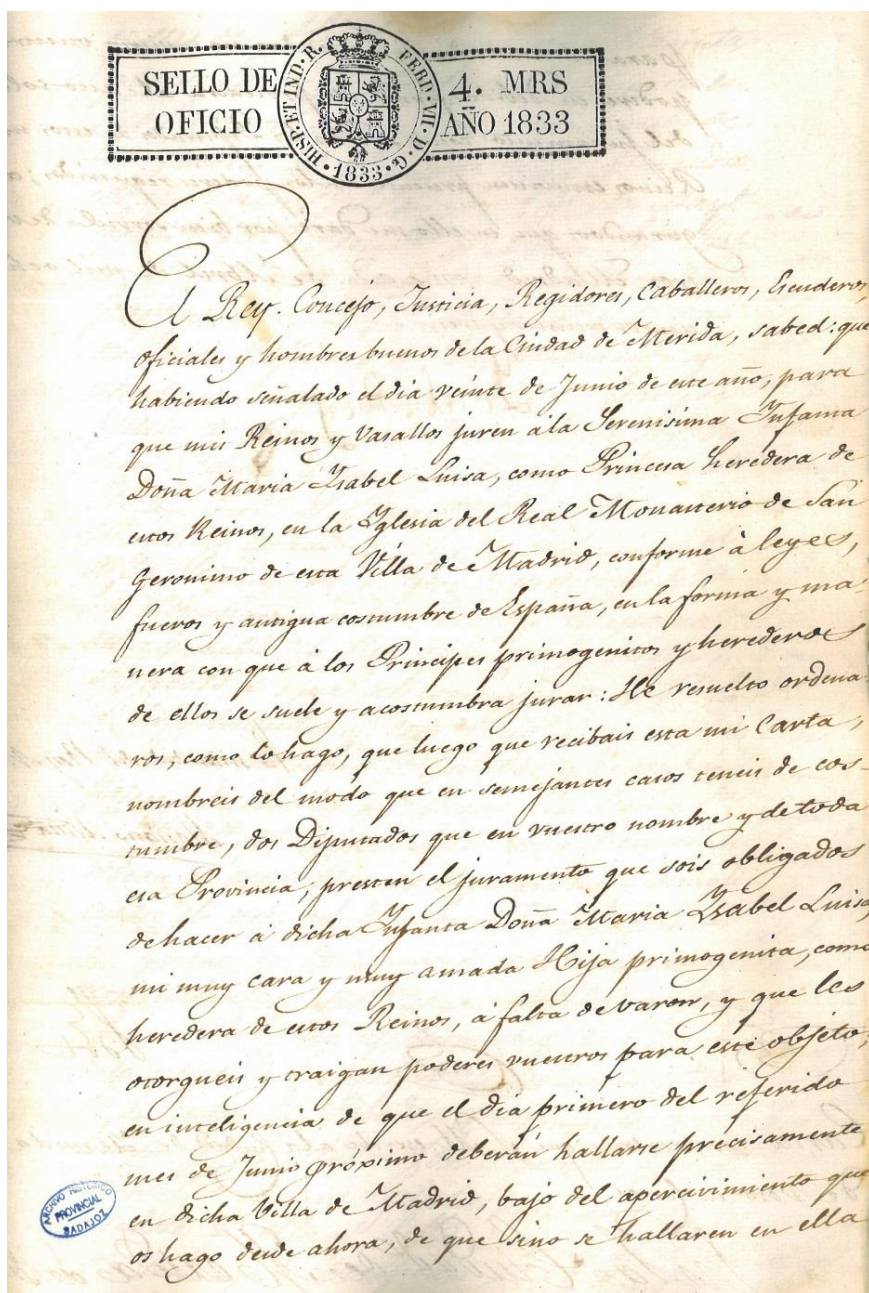 SELLO DE
OFICIO
HISP. ET IND. R. FERD. VII. D. G.
·1833·
4. MRS
AÑO 1833
El Rey. Concejo, Justicia, Regidores, Caballeros, Escuderos,
oficiales y hombres buenos de la Ciudad de Merida, sabed: que
habiendo señalado el dia veinte de Junio de este año, para
que mis Reinos y Vasallos juren á la Serenisima Infanta
Doña Maria Ysabel Luisa, como Princesa heredera de
estos Reinos, en la Yglesia del Real Monasterio de San
Geronimo de esta Villa de Madrid, conforme à leyes,
fueros y antigua costumbre de España, en la forma y ma-
nera con que à los Principes primogenitos y herederos
de ellos se suele y acostumbra jurar: He resuelto ordena-
ros, como lo hago, que luego que recibais esta mi Carta,
nombreis del modo que en semejantes casos teneis de cos-
tumbre, dos Diputados que en vuestro nombre y de toda
esa Provincia, presten el juramento que sois obligados
de hacer à dicha Infanta Doña Maria Ysabel Luisa,
mi muy cara y muy amada Hija primogenita, como
heredera de estos Reinos, à falta de varon, y que les
otorgueis y traigan poderes vuestros para este objeto,
en inteligencia de que el dia primero del referido
mes de Junio próximo deberán hallarse precisamente
en dicha Villa de Madrid, bajo del apercivimiento que
os hago desde ahora, de que sino se hallaren en ella
ARCHIVO HISTÓRICO
PROVINCIAL
BADAJOZ